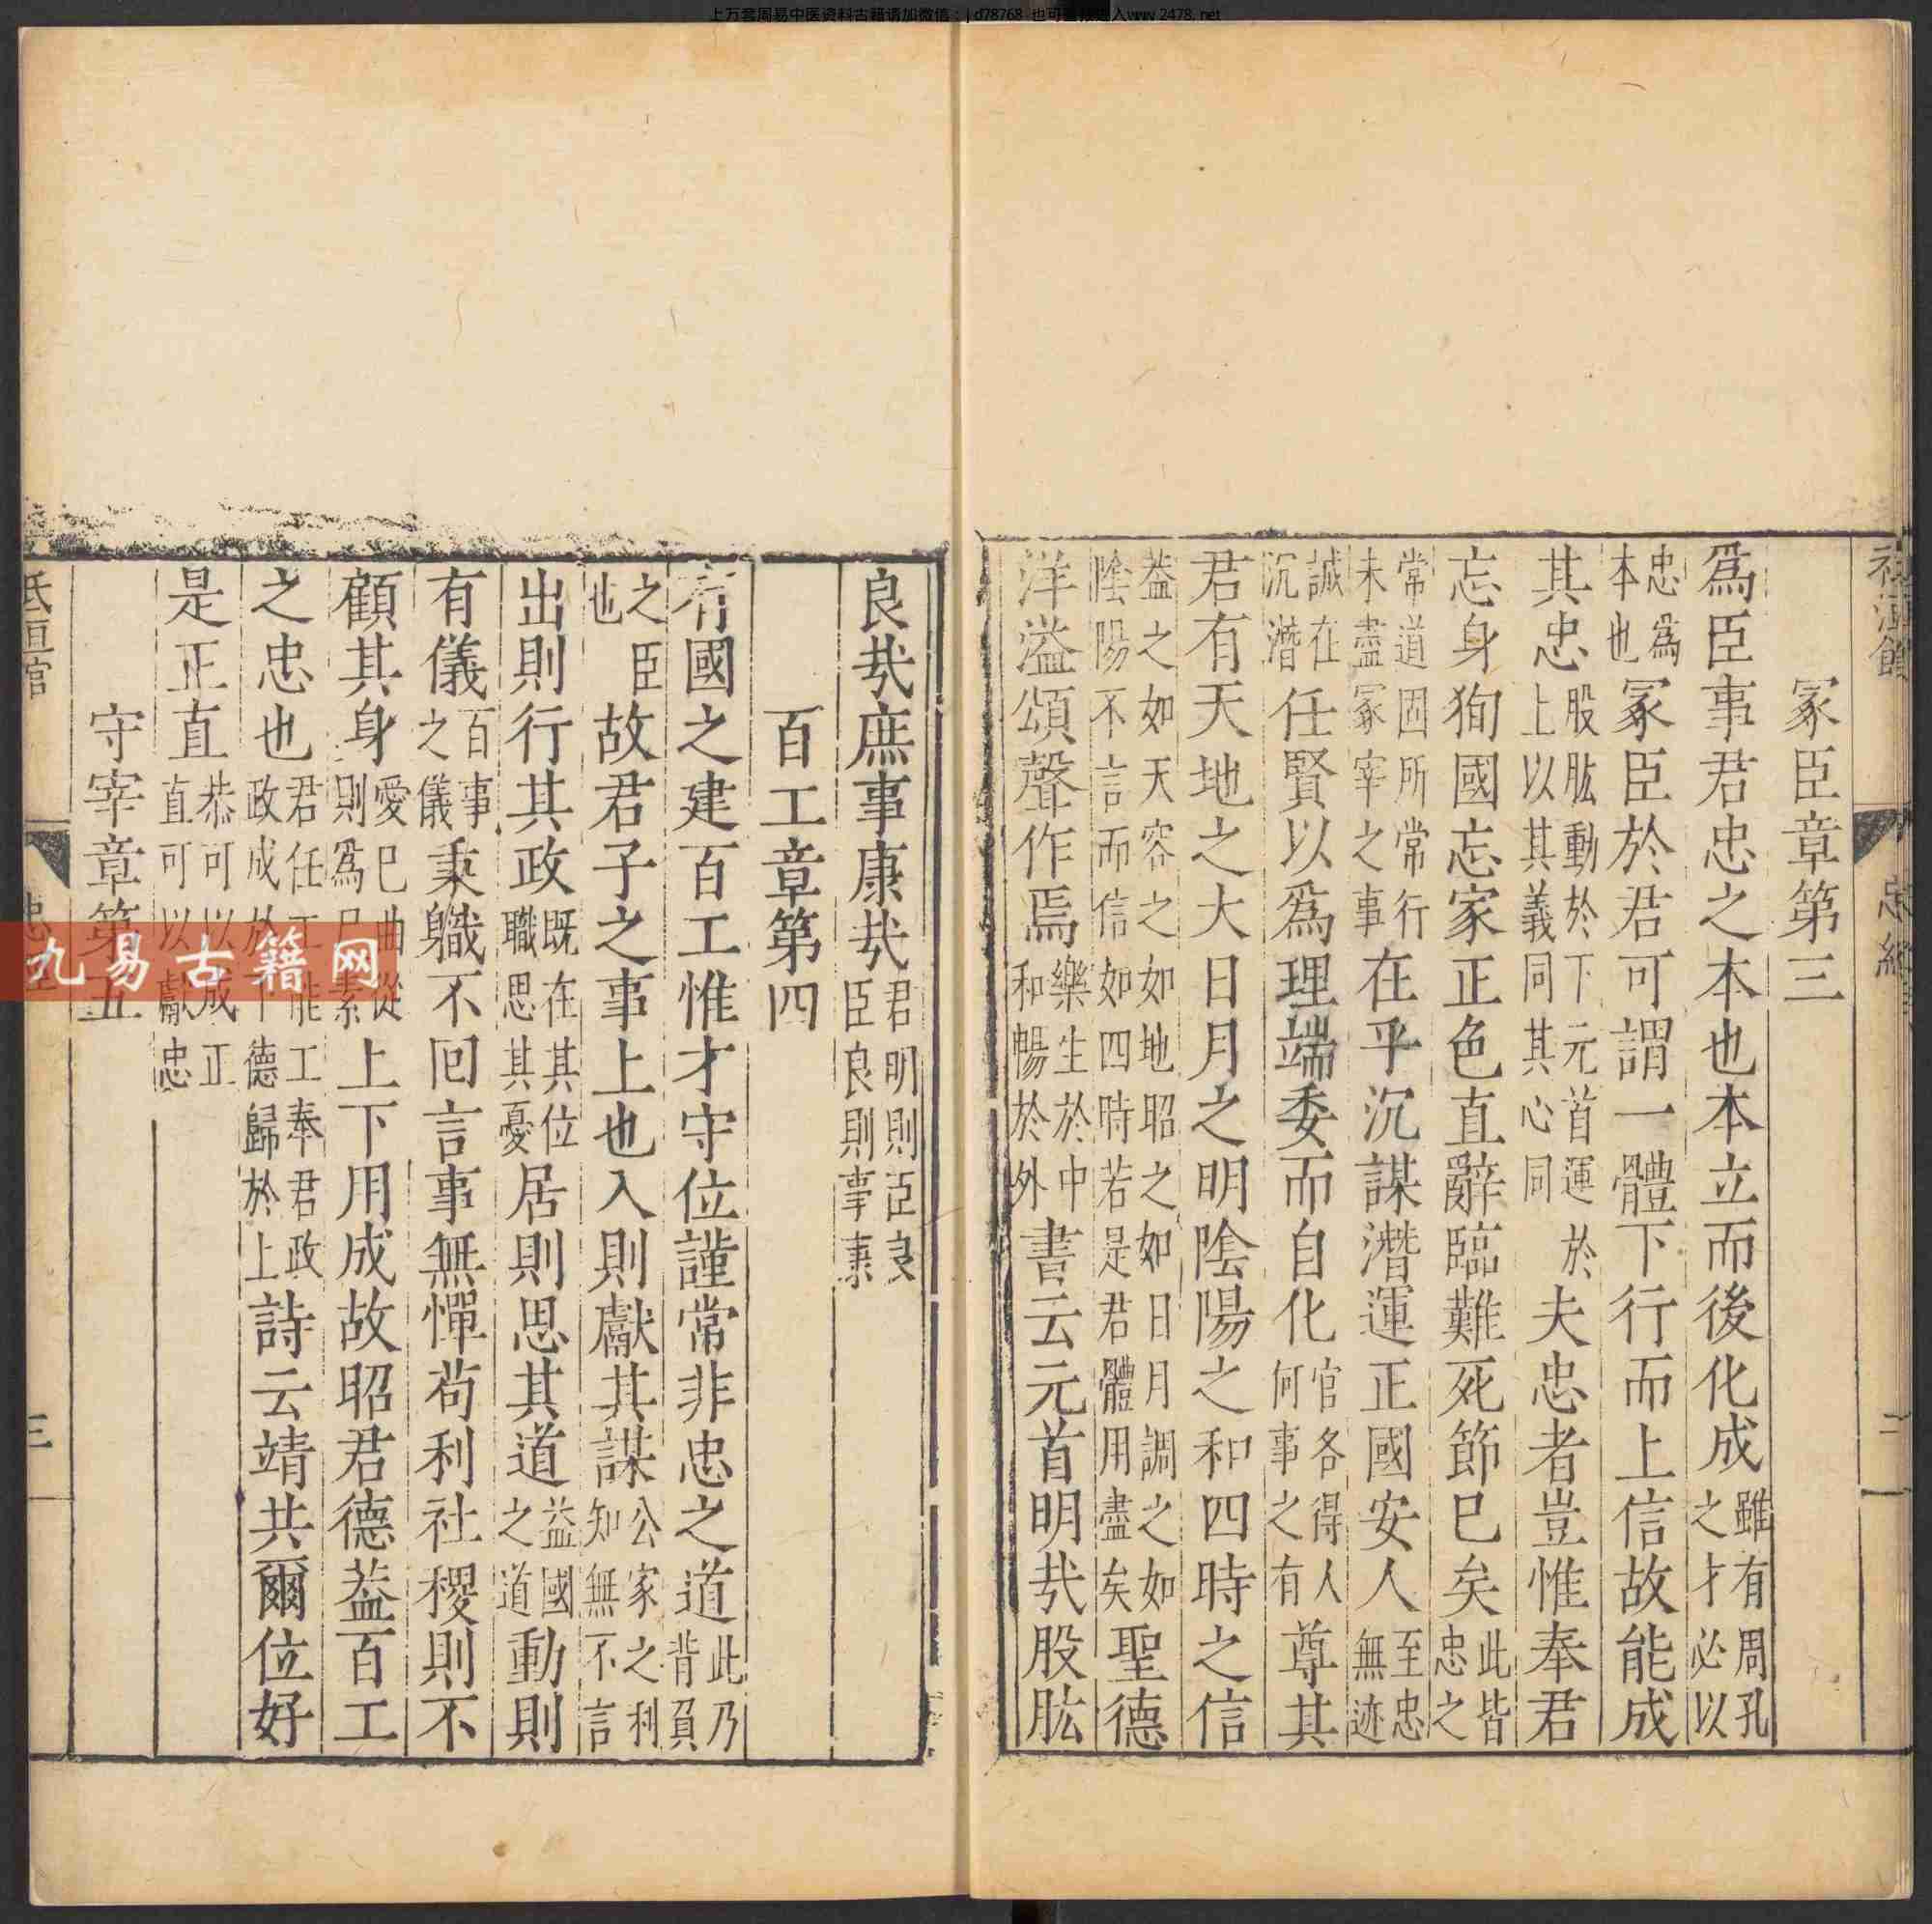 上万套周易中医资料古籍请加微信：jd78768 也可直接进入www.2478.net
冢臣章第三
爲臣事君忠之本也本立而後化成雖有周孔之才必以
忠爲本也冢臣於君可謂一體下行而上信故能成
其忠股肱動於下元首運於上以其義同其心同夫忠者豈惟奉君
忘身狥國忘家正色直辭臨難死節已矣此皆忠之
常道固所常行未盡冢宰之事在乎沉謀潛運正國安人至忠無迹
誠在沉潛任賢以爲理端委而自化官各得人何事之有尊其
君有天地之大日月之明陰陽之和四時之信
葢之如天容之如地昭之如日月調之如陰陽不言而信如四時若是君體用盡矣聖德
洋溢頌聲作焉樂生於中和暢於外書云元首明哉股肱
良哉庶事康哉君明則臣良臣良則事康
百工章第四
有國之建百工惟才守位謹常非忠之道此乃背負
之臣也故君子之事上也入則獻其謀公家之利知無不言
出則行其政既在其位職思其憂居則思其道益國之道動則
有儀百事之儀秉職不回言事無憚苟利社稷則不
顧其身愛已曲從則爲尸素上下用成故昭君德葢百工
之忠也君任工能工奉君政政成於下德歸於上詩云靖共爾位好
是正直恭可以成正直可以獻忠
守宰章第五
忠經
三
九易古籍网